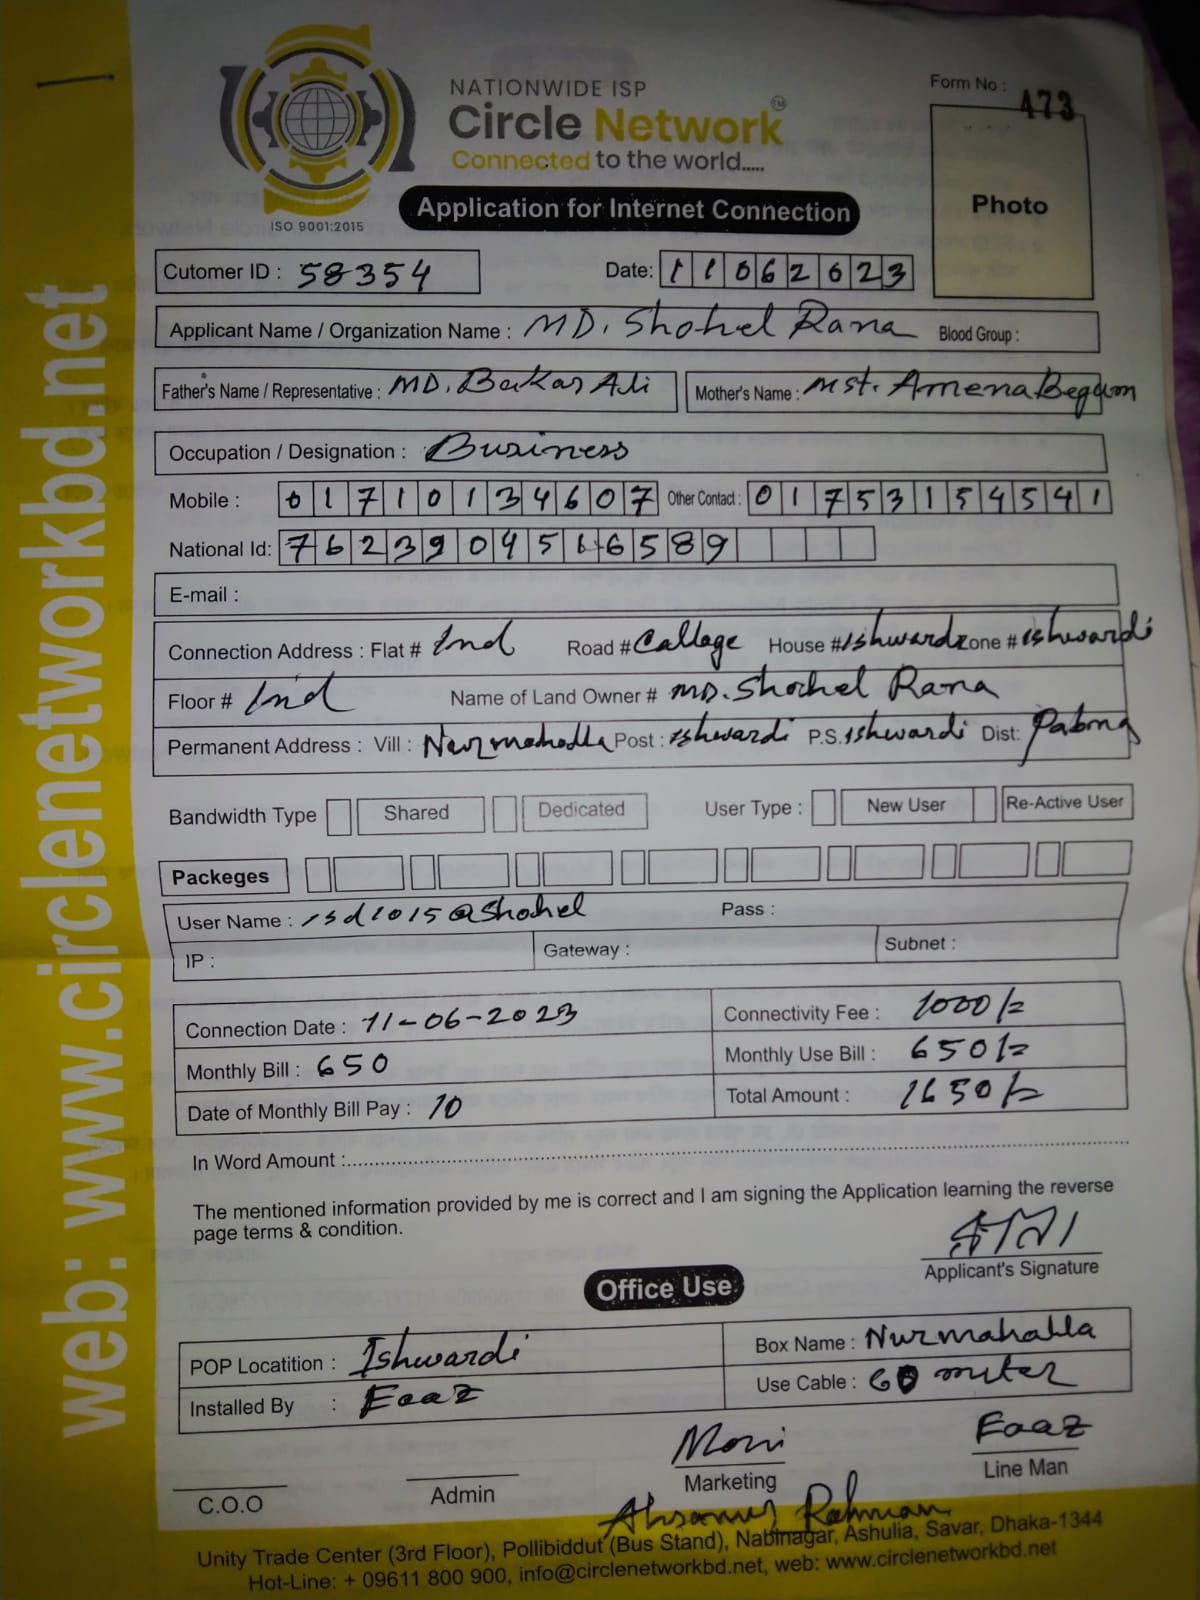 NATIONWIDE ISP
Circle Network TM
Connected to the world.....
ISO 9001:2015
Form No : 473
Photo
Application for Internet Connection
Cutomer ID : 58354 Date: 11062023
Applicant Name / Organization Name : MD. Shohel Rana Blood Group :
Father's Name / Representative : MD. Bakar Ali Mother's Name : Mst. Amena Begum
Occupation / Designation : Business
Mobile : 01710134607 Other Contact : 01753154541
National Id: 7623904566589
E-mail :
Connection Address : Flat # Ind Road # Callage House # Ishwardi Zone # Ishwardi
Floor # Ind Name of Land Owner # MD. Shohel Rana
Permanent Address : Vill : Nurmahalla Post : Ishwardi P.S. Ishwardi Dist: Pabna
Bandwidth Type Shared Dedicated User Type : New User Re-Active User
Packeges
User Name : isd1015@Shohel Pass :
IP : Gateway : Subnet :
Connection Date : 11-06-2023 Connectivity Fee : 1000/=
Monthly Bill : 650 Monthly Use Bill : 650/=
Date of Monthly Bill Pay : 10 Total Amount : 1650/=
In Word Amount :
The mentioned information provided by me is correct and I am signing the Application learning the reverse
page terms & condition.
রানা
Applicant's Signature
Office Use
POP Locatition : Ishwardi Box Name : Nurmahalla
Installed By : Eaaz Use Cable : 60 miter
Moni Eaaz
C.O.O Admin Marketing Line Man
Rahman
Unity Trade Center (3rd Floor), Pollibiddut (Bus Stand), Nabinagar, Ashulia, Savar, Dhaka-1344
Hot-Line: + 09611 800 900, info@circlenetworkbd.net, web: www.circlenetworkbd.net
web: www.circlenetworkbd.net